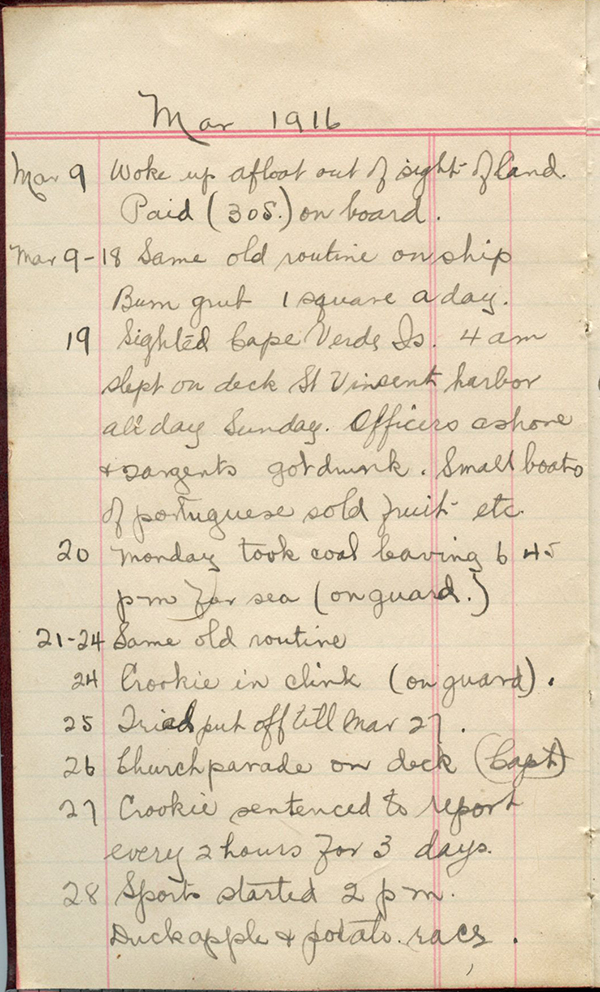 Mar 1916
Mar 9 Woke up afloat out of sight of land.
Paid (30S.) on board.
Mar 9-18 Same old routine on ship
Bum grub 1 square a day.
19 Sighted Cape Verde Is. 4 am
slept on deck St Vinsent harbor
all day Sunday. Officers ashore
+ sargents got drunk. Small boats
of portuguese sold fruit etc.
20 Monday took coal leaving 6 45
pm for sea (on guard.)
21-24 Same old routine
24 Crookie in clink (on guard).
25 Tried put off till Mar 27.
26 Church parade on deck (Capt)
27 Crookie sentenced to report
every 2 hours for 3 days.
28 Sports started 2 pm.
Duckapple & potato race.